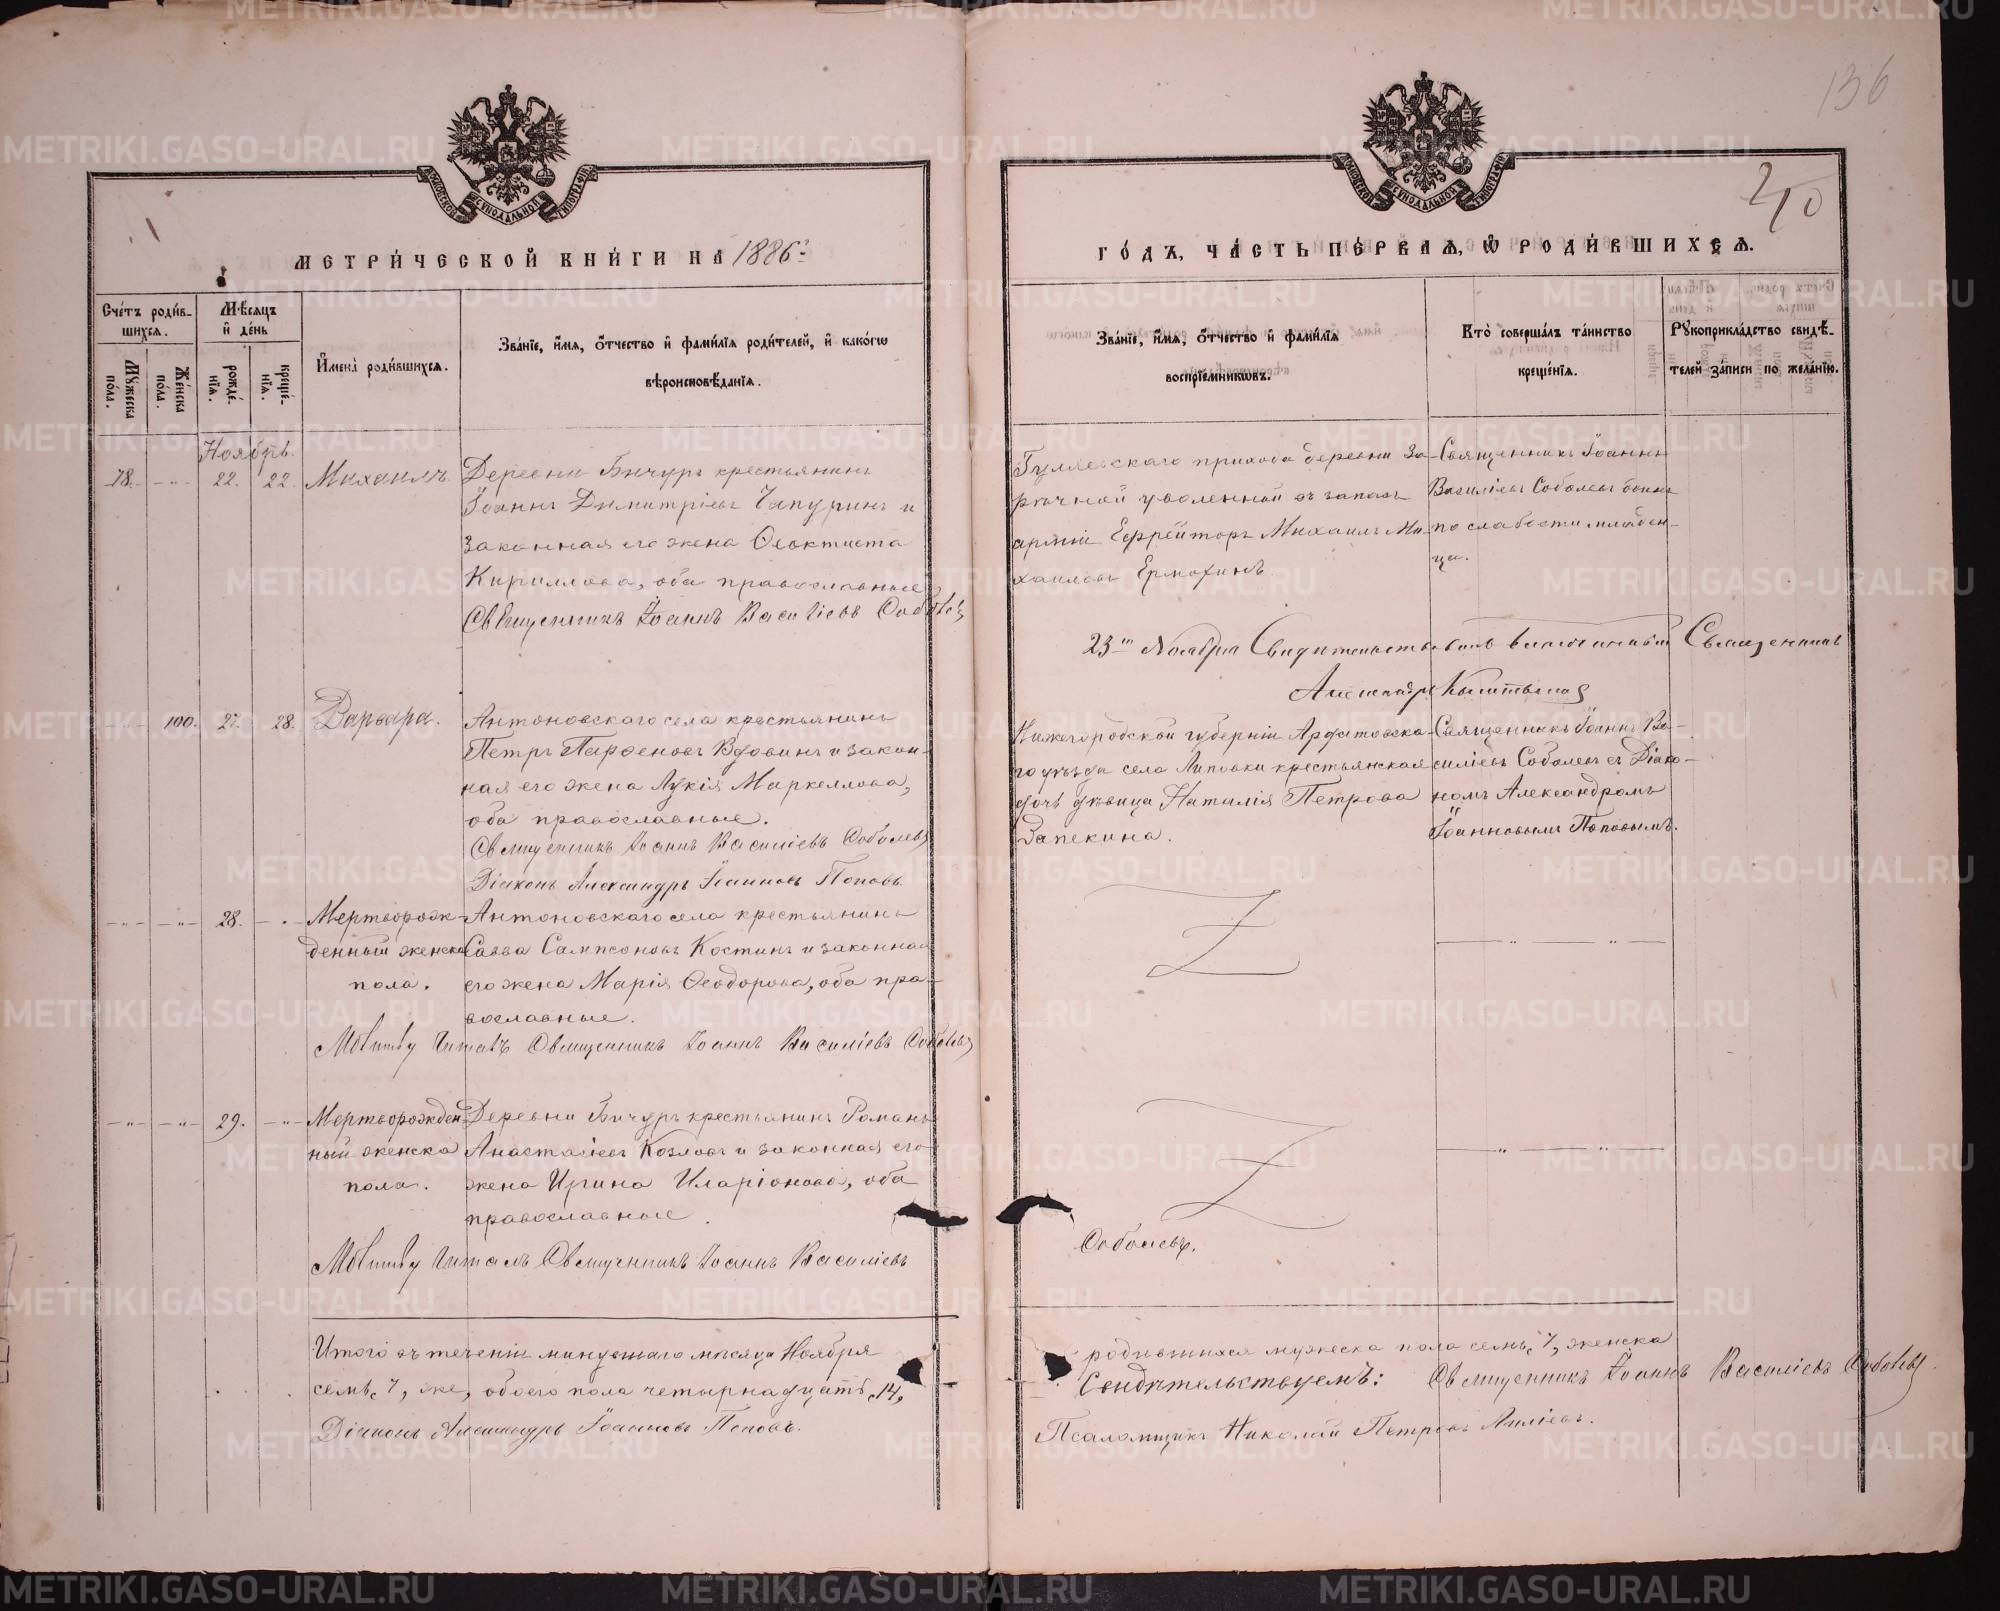 136
210
МЕТРИ́ЧЕСКОЙ КНИ́ГИ НА 1886 г.
ГО́ДЪ, ЧА́СТЬ ПЕ́РВАѦ, Ѽ РОДИ́ВШИХСѦ.
Сче́тъ роди́в-
шихсѧ.
Мѣ́сѧцъ
и де́нь
Мꙋ́жеска по́ла.
Же́нска по́ла.
рожде́-
нїѧ.
креще́-
нїѧ.
Имена̀ роди́вшихсѧ.
Зва́нїе, и́мѧ, ѻ́тчество и фами́лїѧ роди́телей, и како́гѡ
вѣроисповѣ́данїѧ.
Зва́нїе, и́мѧ, ѻ́тчество и фами́лїѧ
воспрїе́мникѡвъ.
Кто̀ соверша́лъ та́инство
креще́нїѧ.
Рꙋкоприкла́дство свидѣ́-
телей за́писи по жела́нїю.
Ноябрь.
78. -„- 22. 22. Михаилъ.
Деревни Бичуръ крестьянинъ
Іоаннъ Димитріевъ Чапуринъ и
законная его жена Ѳеоктиста
Кириллова, оба православные
Священникъ Іоаннъ Василіевъ Соболевъ
Гуляевскаго прихода деревни За-
рѣчной уволенной въ запасъ
арміи Ефрейторъ Михаилъ Ми-
хаиловъ Ермохинъ
Священникъ Іоаннъ
Василіевъ Соболевъ
по слабости младен-
ца.
23го Ноября Свидетельствовалъ Священникъ
Александръ
100. 27. 28. Варвара.
Антоновскаго села крестьянинъ
Петръ Парѳеновъ Вдовинъ и закон-
ная его жена Лукія Маркеллова,
оба православные.
Священникъ Іоаннъ Василіевъ Соболевъ
Діаконъ Александръ Іоанновъ Поповъ.
Нижегородской губерніи Ардатовска-
го уѣзда села Липовки крестьянская
дочь дѣвица Наталія Петрова
Запекина.
Священникъ Іоаннъ Ва-
силіевъ Соболевъ съ Діако-
номъ Александромъ
Іоанновымъ Поповымъ.
-„- -„- 28. - . Мертворож-
денный женска
пола.
Антоновскаго села крестьянинъ
Савва Сампсоновъ Костинъ и законная
его жена Марія Ѳеодорова, оба пра-
вославные.
Молитву читалъ Священникъ Іоаннъ Василіевъ Соболевъ
-„- -„- 29. -„- Мертворожден
ный женска
пола.
Деревни Бичуръ крестьянинъ Романъ
Анастасіевъ Козловъ и законная его
жена Ирина Иларіонова, оба
православные.
Молитву читалъ Священникъ Іоаннъ Василіевъ
Соболевъ.
Итого въ теченіи минувшаго мѣсяца Ноября
родившихся мужеска пола семь, 7, женска
семь, 7, же, обоего пола четырнадцать, 14,
Свидѣтельствуемъ: Священникъ Іоаннъ Василіевъ Соболевъ.
Діаконъ Александръ Іоанновъ Поповъ.
Псаломщикъ Николай Петровъ
METRIKI.GASO-URAL.RU